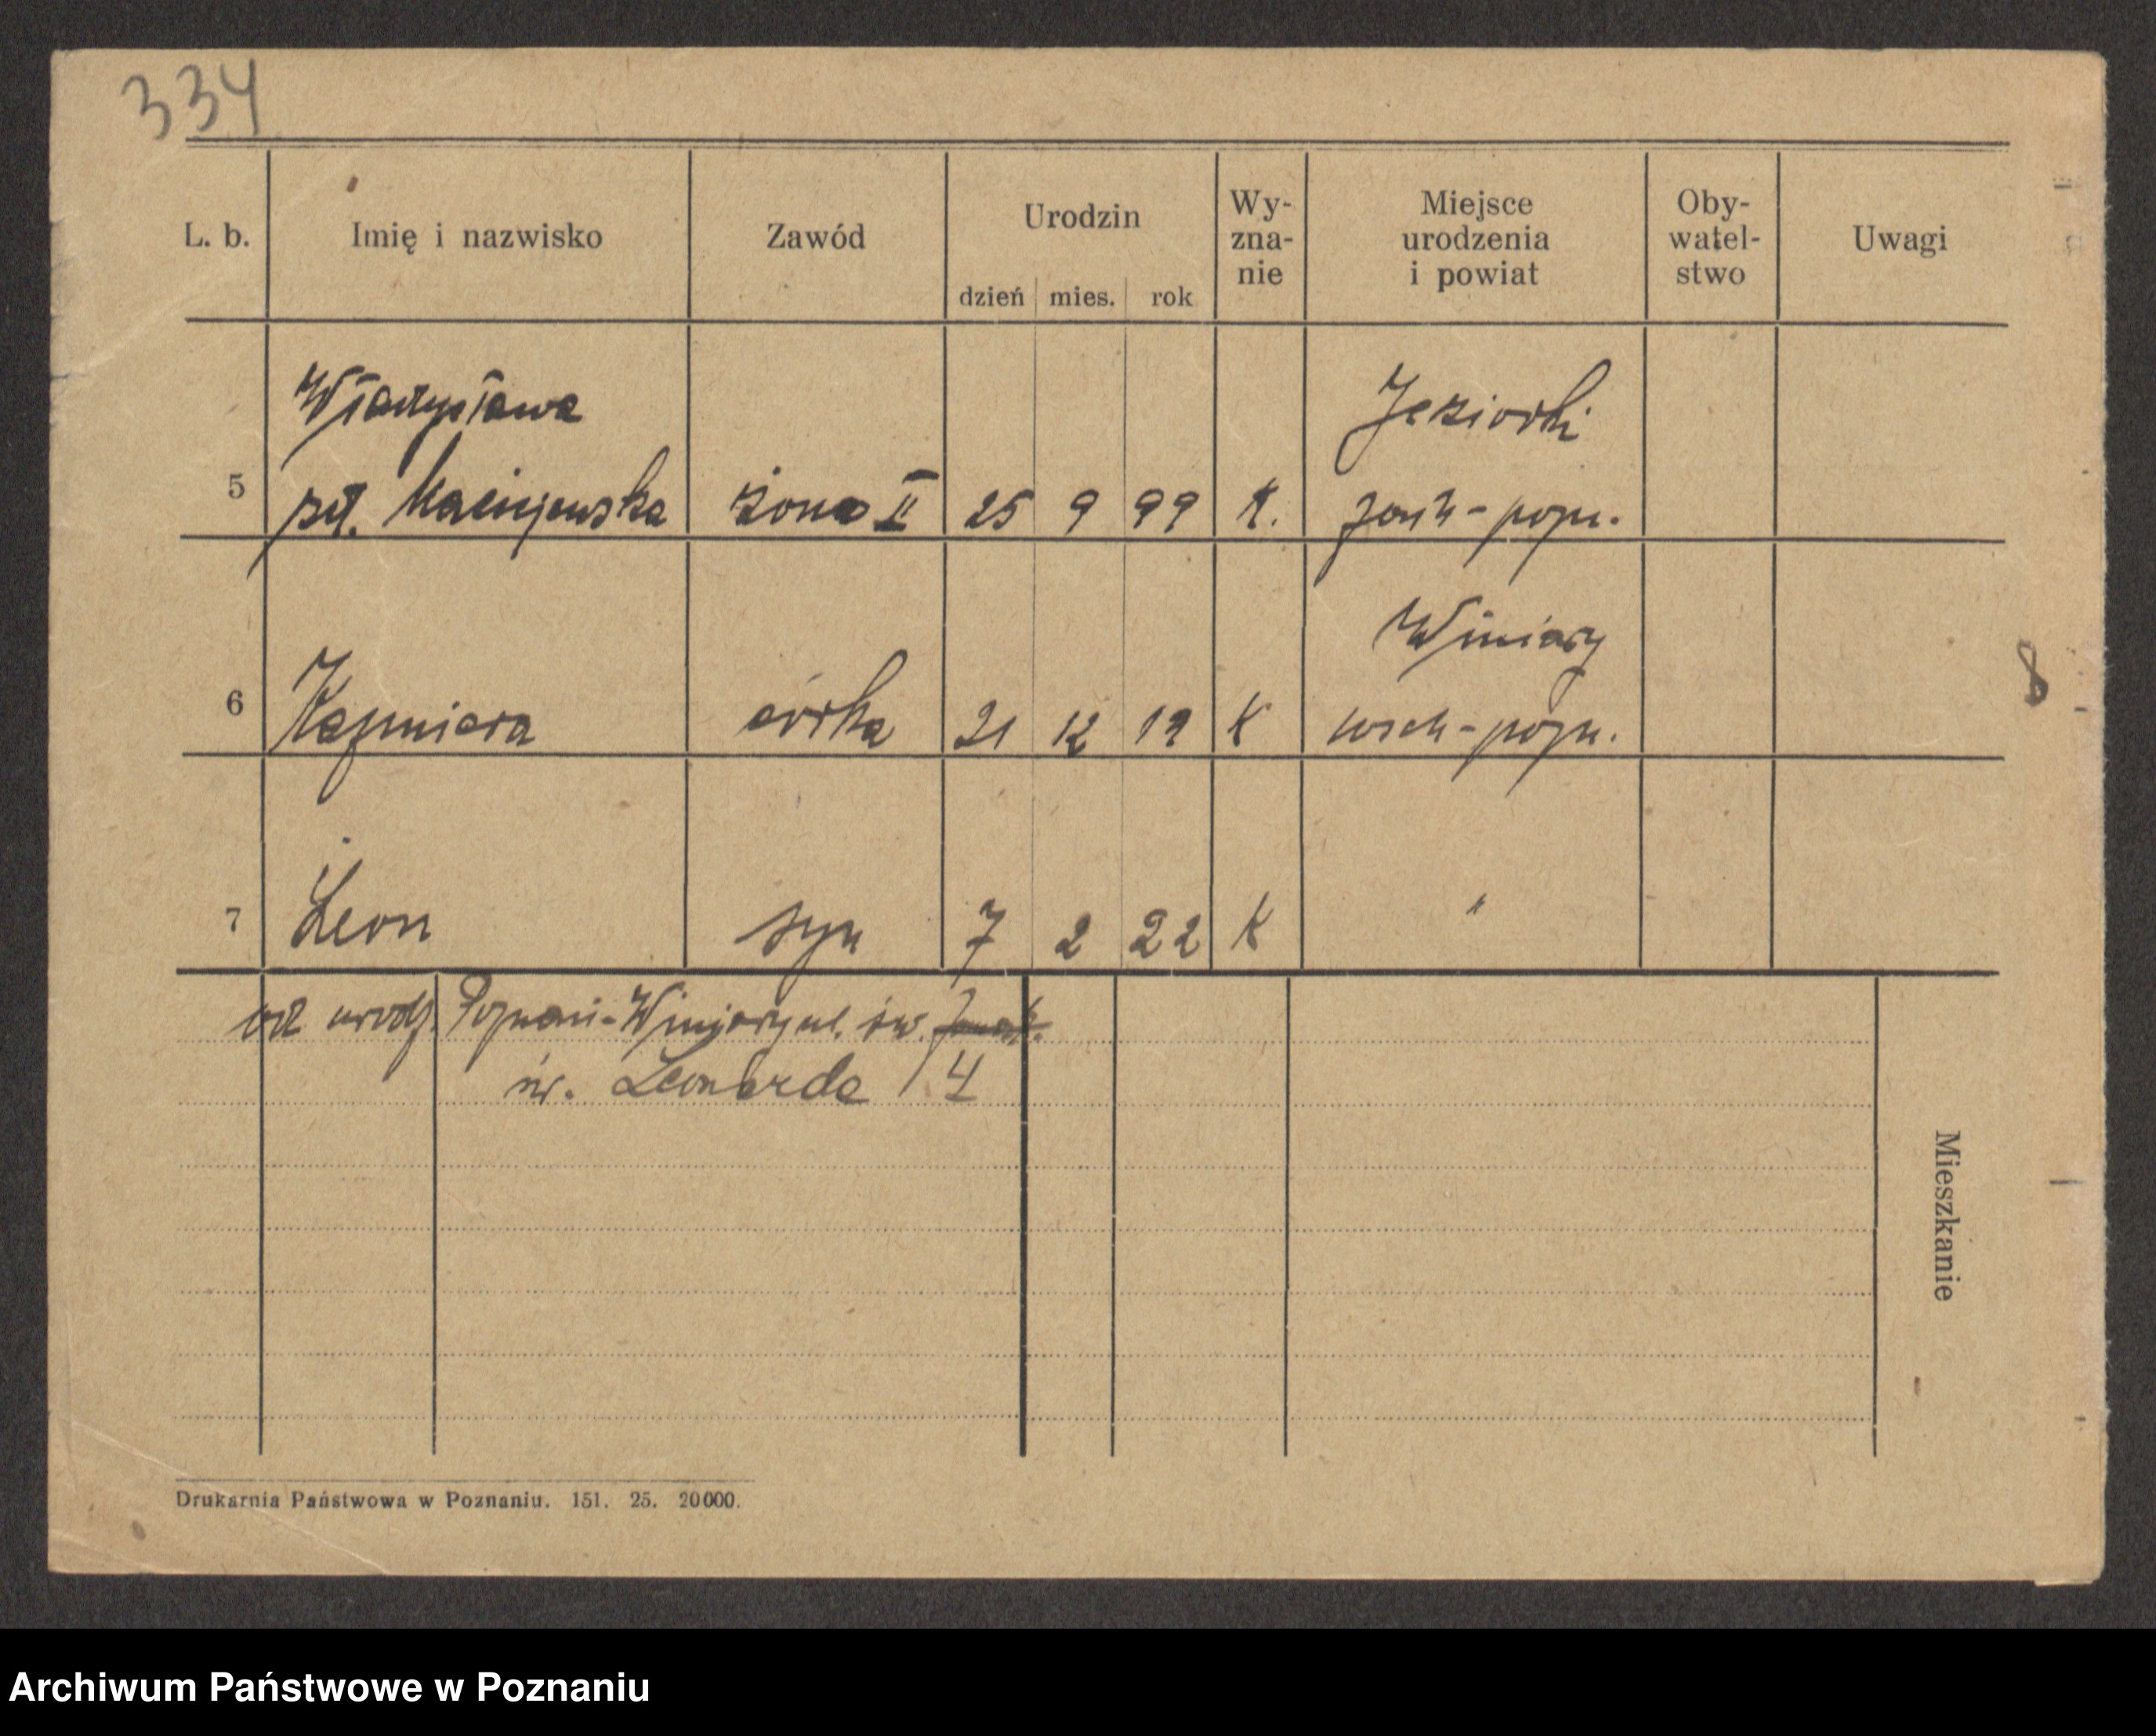 334
L. b.
Imię i nazwisko
Zawód
Urodzin
dzień mies. rok
Wy-
zna-
nie
Miejsce
urodzenia
i powiat
Oby-
watel-
stwo
Uwagi
Władysława
Jeziorki
5 Maciejewska żona II 25 9 99 K.
Winiary
6 Kazmiera córka 21 12 19 K wsch-pozn.
7 Leon syn 7 2 22 K "
od urodz. Poznań-Winiary ul. św.
św. Leonarda 4
8
Mieszkanie
Drukarnia Państwowa w Poznaniu. 151. 25. 20000.
Archiwum Państwowe w Poznaniu